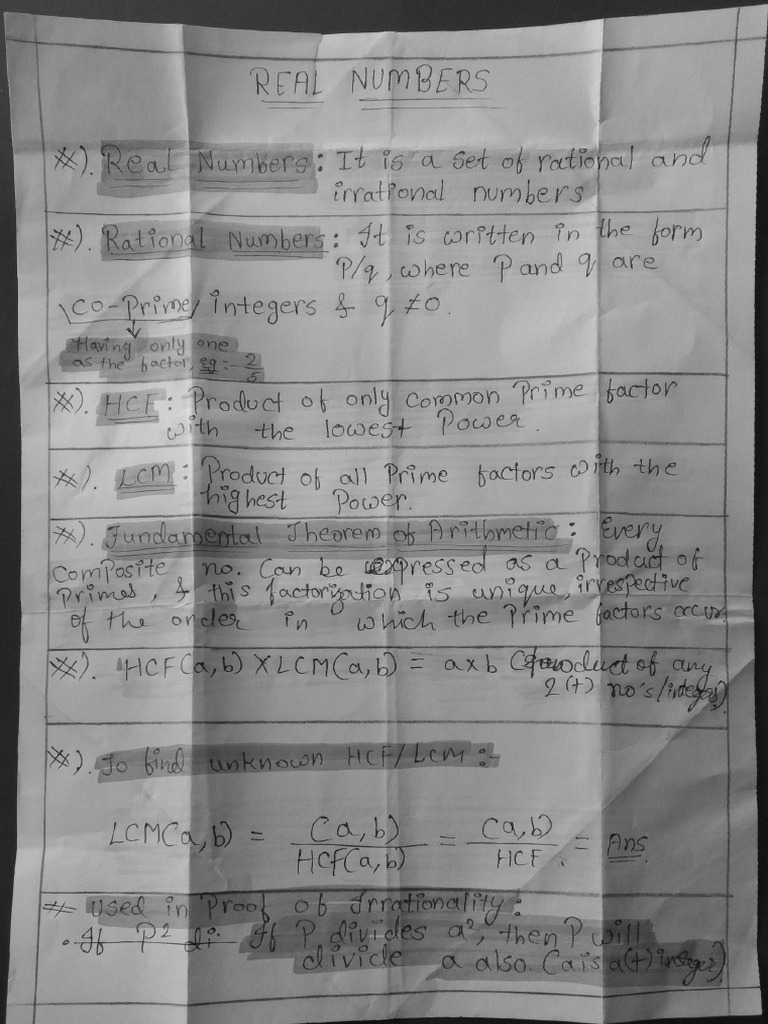 REAL NUMBERS
※). Real Numbers: It is a set of rational and
irrational numbers
※). Rational Numbers: It is written in the form
P/q, where P and q are
\co-Prime/ integers & q ≠0.
↓
Having only one
as the factor, eg :- 2/5
※). HCF: Product of only common Prime factor
with the lowest Power.
※). LCM: Product of all Prime factors with the
highest Power.
※). Fundamental Theorem of Arithmetic: Every
Composite no. Can be expressed as a Product of
Primes, & this factorization is unique, irrespective
of the order in which the Prime factors occur
※). HCF(a,b) X LCM(a,b) = a x b (product of any
2 (+) no's/integers)
※). To find unknown HCF/LCM :-
LCM(a,b) = (a,b)/HCF(a,b) = (a,b)/HCF. = Ans.
# used in Proof of Irrationality:
. If P² di. If P divides a², then P will
divide a also. (a is a (+) integer)